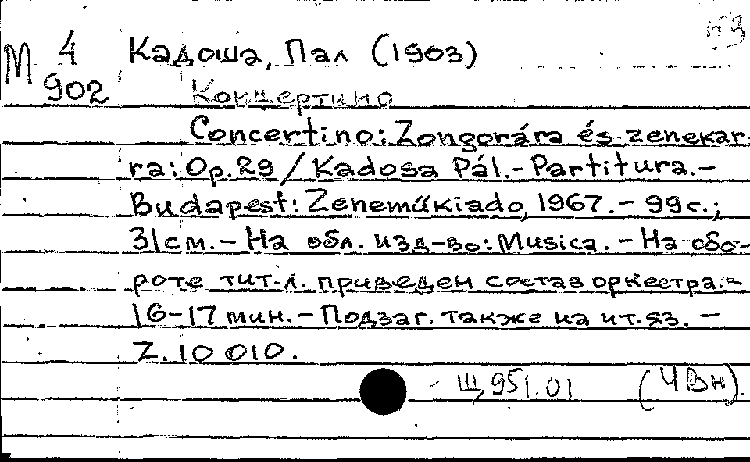 М 4 Кадоша, Пал (1903)
902 Концертино
Concertino: Zongorára és zenekar-
ra: Op. 29 / Kadosa Pál. – Partitura. –
Budapest: Zeneműkiado, 1967. – 99 с.;
31 см. – На обл. изд-во: Musica. – На обо-
роте тит. л. приведен состав оркестра. –
16–17 мин. – Подзаг. также на ит. яз. –
Z. 10 010.
Щ 951.01 (ЧВн)